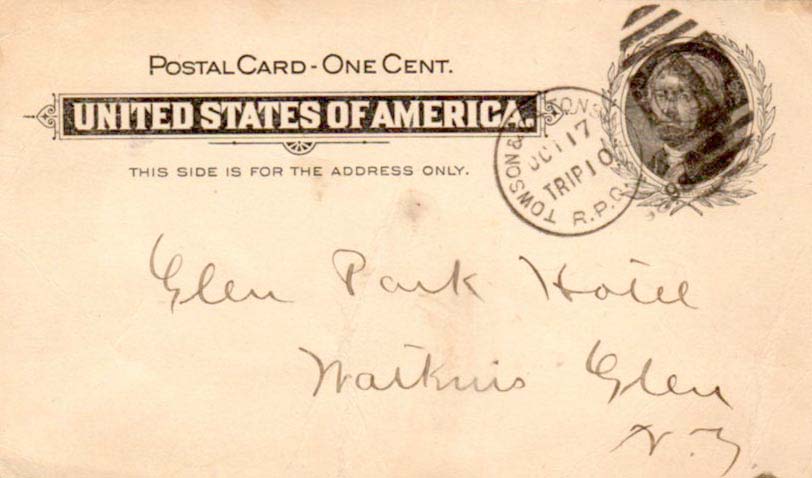 POSTAL CARD - ONE CENT.
UNITED STATES OF AMERICA.
THIS SIDE IS FOR THE ADDRESS ONLY.
TOWSON &
OCT 17
TRIP 10
R.P.O.
Glen Park Hotel
Watkins Glen
N.Y.